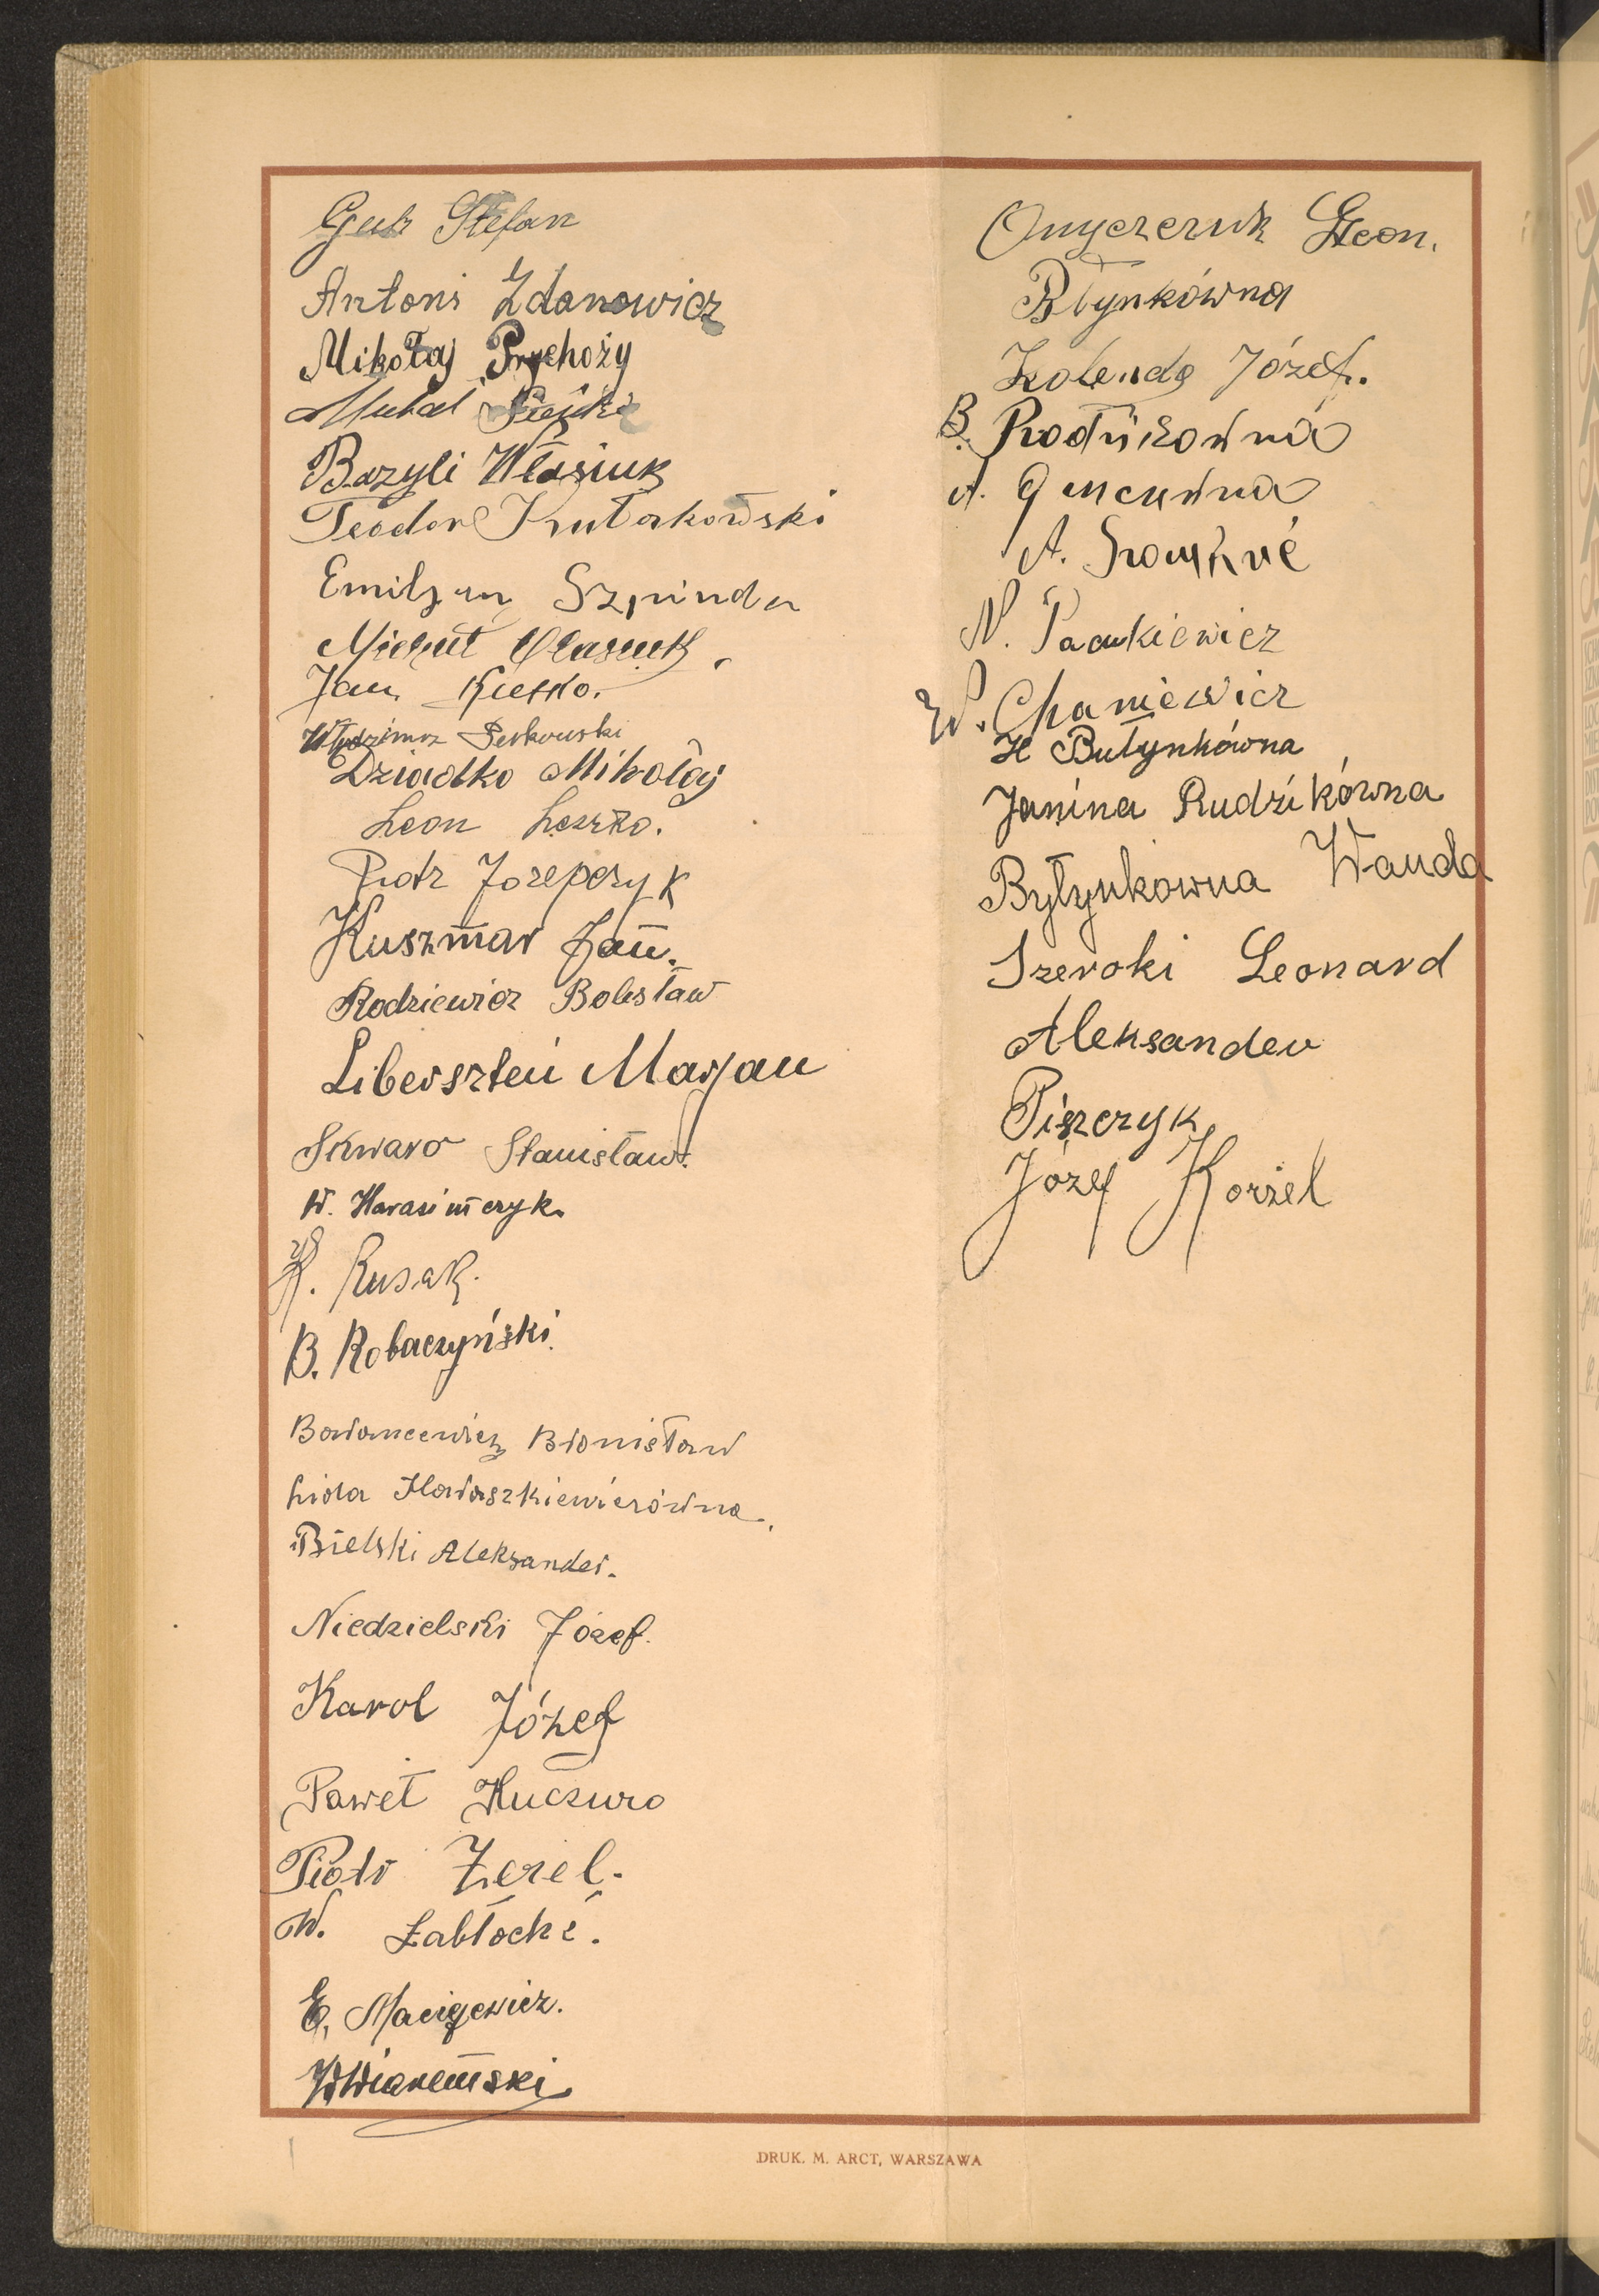 Gut Stefan
Antoni Zdanowicz
Mikołaj Prychoży
Michał
Bazyli Własiuk
Teodor Krutarkowski
Emiljan Szpinda
Michał Własiuk.
Jan Kieszko.
Włodzimierz Serkowski
Dziadko Mikołaj
Leon Leszko.
Piotr Jozepczyk
Kuszmar Jan.
Rodziewicz Bolesław
Libersztein Marjan
Skwaro Stanisław.
W. Harasimczyk.
Rusak.
B. Robaczyński.
Barancewicz Bronisław
Lida Haraszkiewiczówna.
Bielski Aleksander.
Niedzielski Józef.
Karol Józef
Paweł Huczuro
Piotr Zerel.
W. Zabłocki.
E. Maciejewicz.
Onyczeruk Leon.
Błynkówna
Kolenda Józef.
B. Rodnikówna
A.
A.
N. Pankiewicz
W. Chaniewicz
H Butynkówna
Janina Rudzikówna
Bytynkowna Wanda
Szeroki Leonard
Aleksander
Piszczyk
Józef Korżel
DRUK. M. ARCT, WARSZAWA